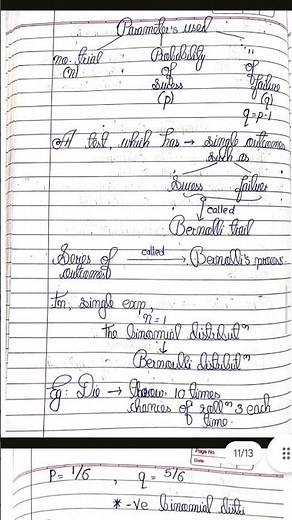 Parameter's used
no. trial Probability "
(n) of of
Sucess failure
(p) (q)
q = p-1
A test, which has → single outcomes
such as
Sucess failure
called
Bernolli trail
Series of called → Bernolli's process.
outcomes
In, single exp.
n = 1
the binomial distributⁿ
↓
Bernoulli distributⁿ
Eg: Die → Throw 10 times
chances of rollⁿ 3 each
time.
Page No.
Date
11/13
P = 1/6 , q = 5/6
* -ve binomial distri